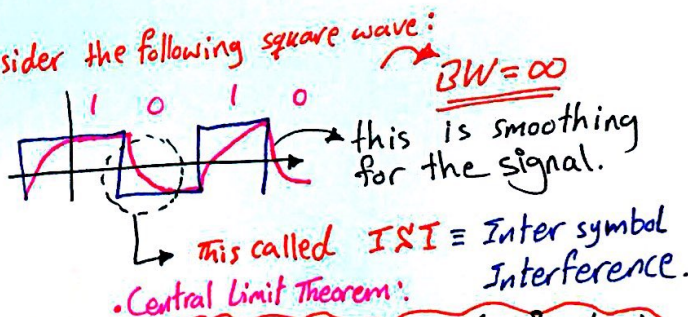 sider the following square wave:
BW = ∞
1 0 1 0
this is smoothing
for the signal.
This called ISI ≡ Inter symbol
Interference.
. Central Limit Theorem: